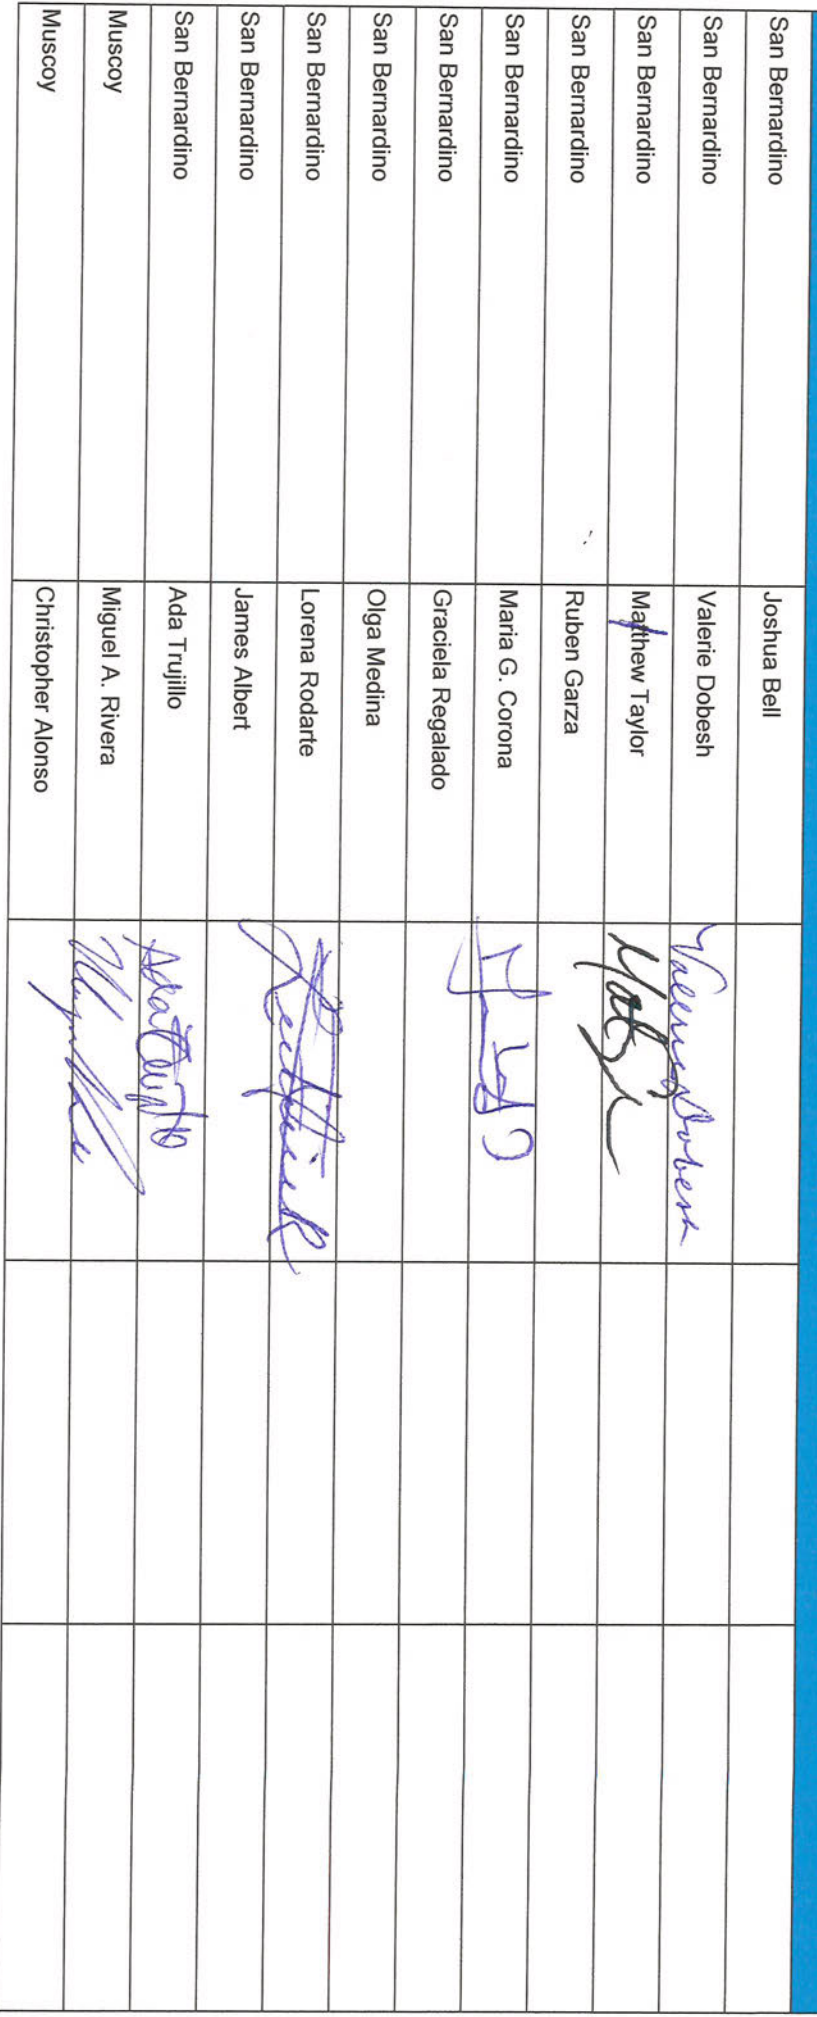 San Bernardino Joshua Bell
San Bernardino Valerie Dobesh Valerie Dobesh
San Bernardino Matthew Taylor
San Bernardino Ruben Garza
San Bernardino Maria G. Corona
San Bernardino Graciela Regalado
San Bernardino Olga Medina
San Bernardino Lorena Rodarte
San Bernardino James Albert
San Bernardino Ada Trujillo Ada Trujillo
Muscoy Miguel A. Rivera
Muscoy Christopher Alonso